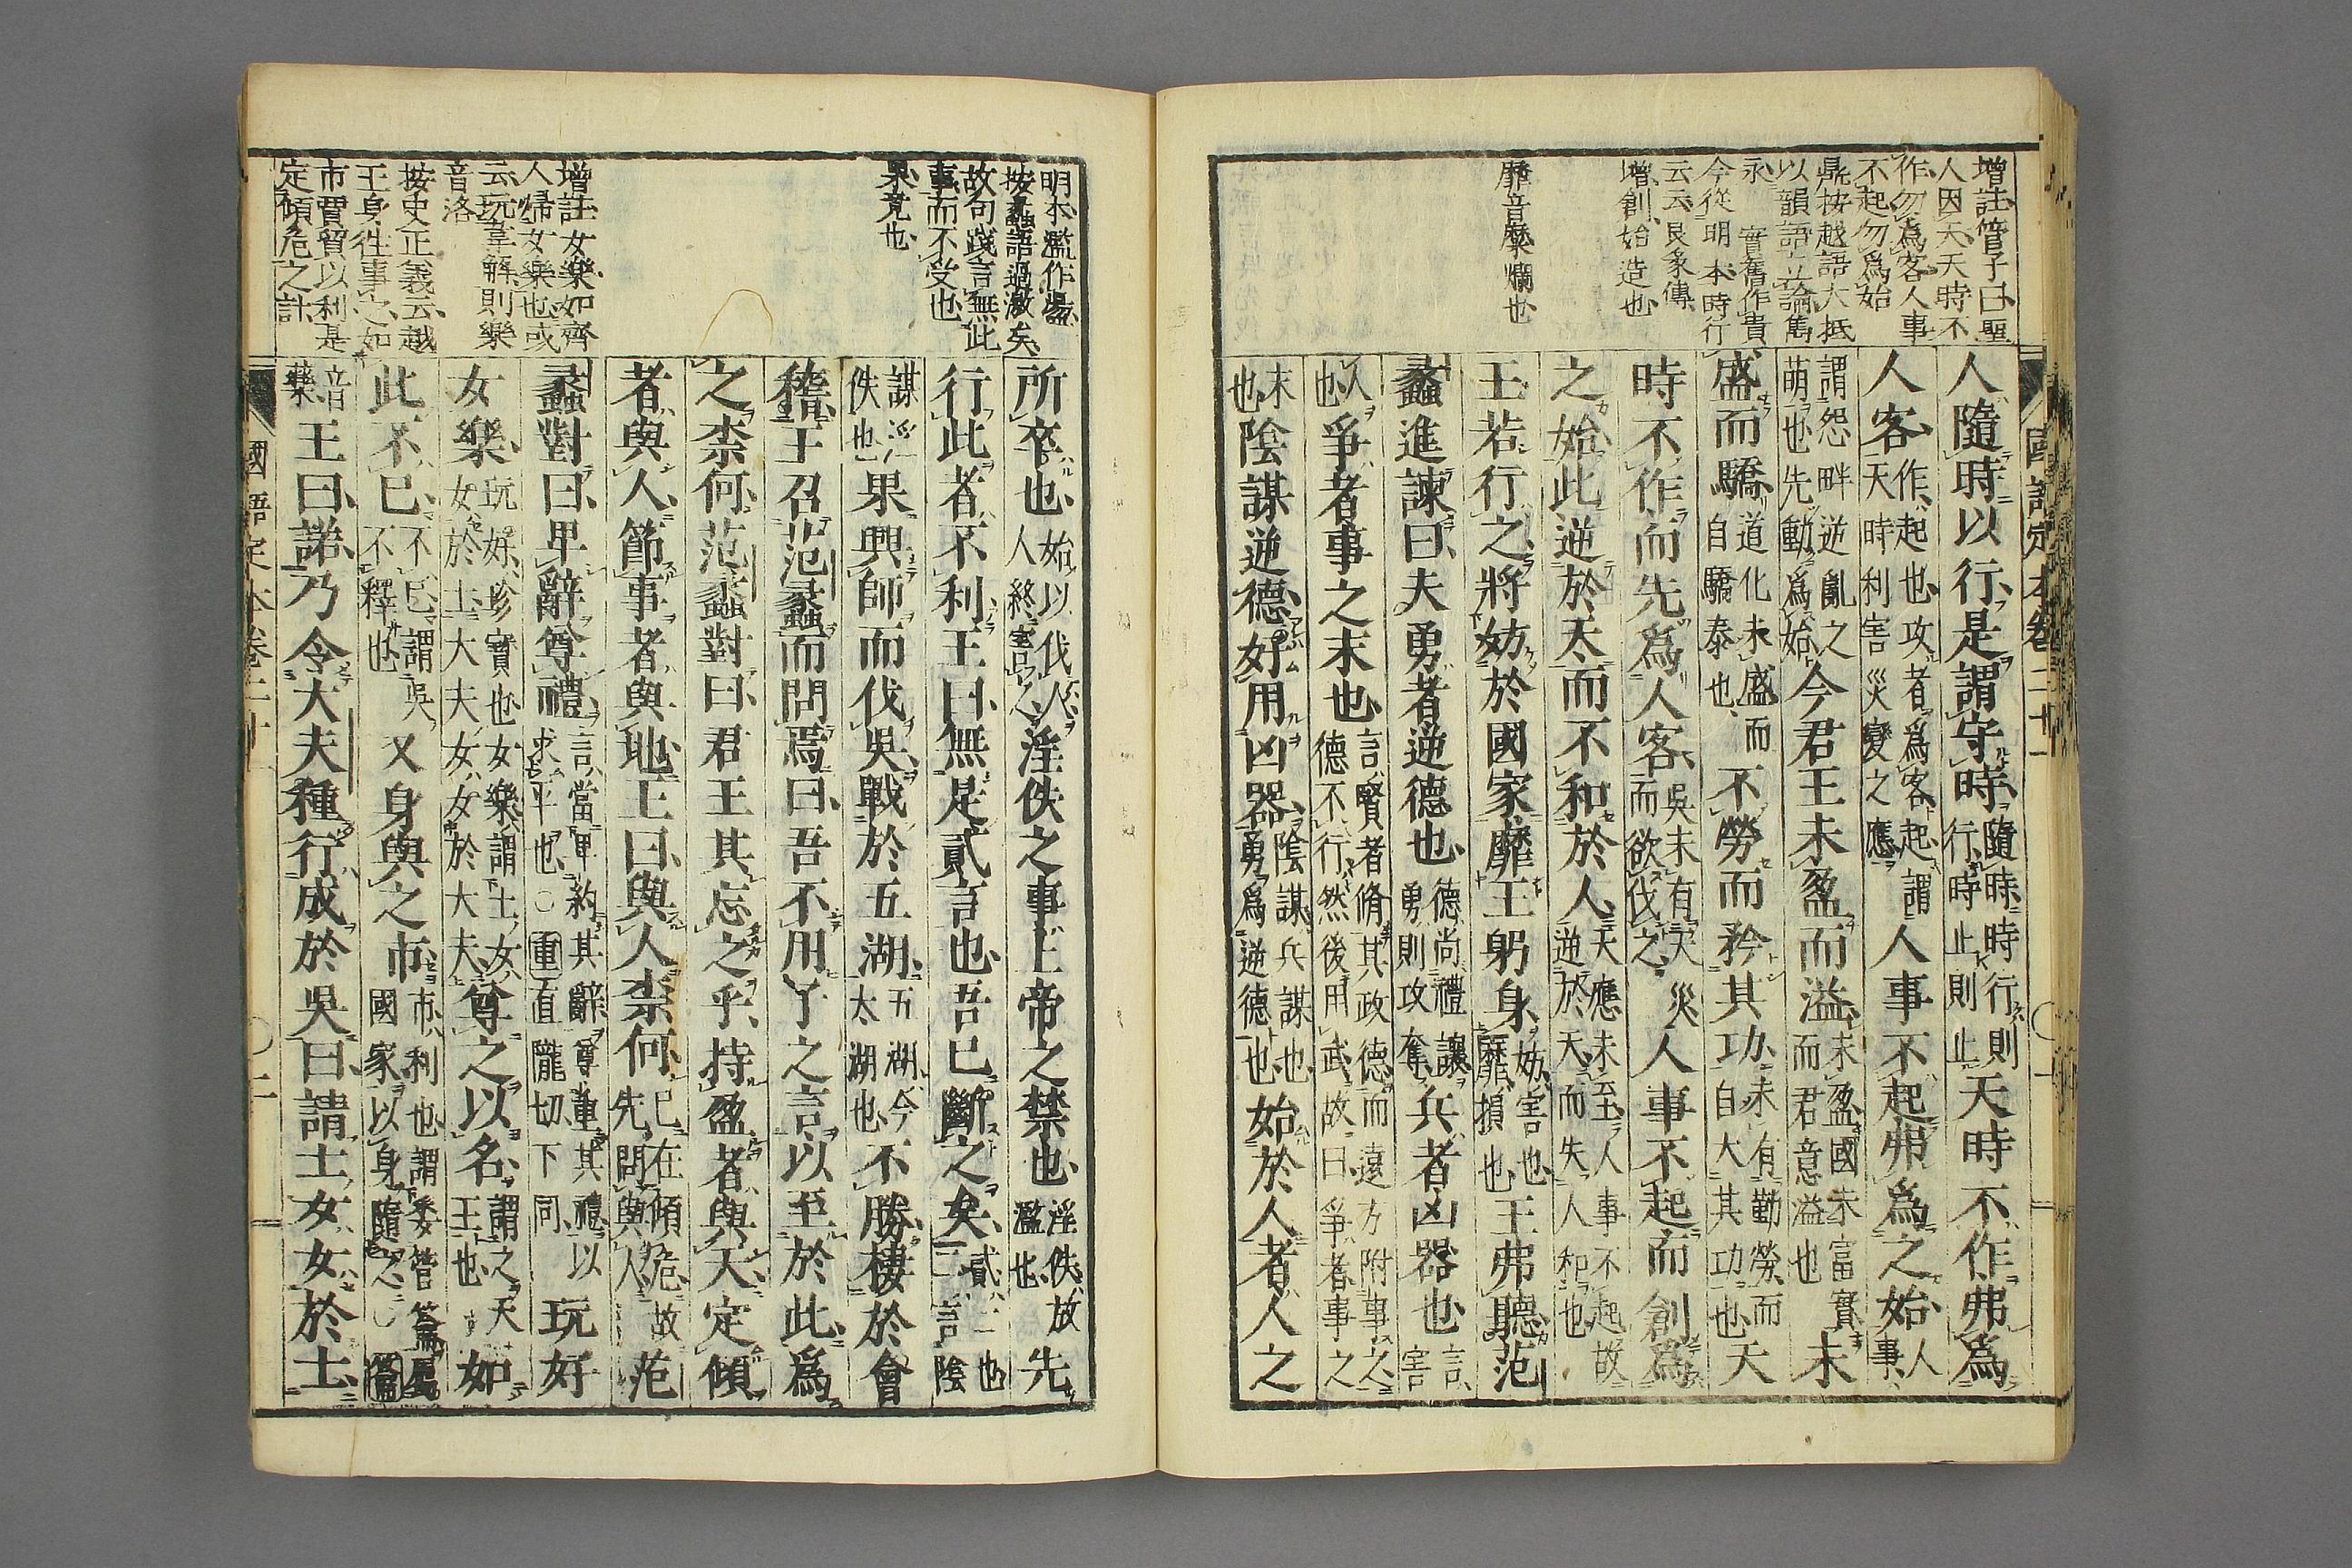 增註管子曰聖
人因天天時不
作勿爲客人事
不起勿爲始
鼎按越語大抵
以韻語立論雋
永　實舊作貴
今從明本時行
云云艮象傳
增創始造也
靡音縻爛也
人隨時以行是謂守時隨時時行則行時止則止天時不作弗爲
人客作起也攻者爲客起謂天時利害災變之應人事不起弗爲之始人事
謂怨畔逆亂之萌也先動爲始今君王未盈而溢未盈國未富實而君意溢也未
盛而驕道化未盛而自驕泰也不勞而矜其功未有勤勞而自大其功也天
時不作而先爲人客吳未有天災而欲伐之人事不起而創爲
之始此逆於天而不和於人天應未至人事不起故逆於天而失人和也
王若行之將妨於國家靡王躬身妨害也靡損也王弗聽范
蠡進諫曰夫勇者逆德也德尚禮讓勇則攻奪兵者凶器也言害
人也爭者事之末也言賢者脩其政德而遠方附事之德不行然後用武故曰爭者事之
末也陰謀逆德好用凶器陰謀兵謀也勇爲逆德也始於人者人之
國語定本卷二十一　〇一
明本濫作溫
按蠡語過激矣
故句踐言無此
事而不受也
果竟也
增註女樂如齊
人歸女樂也或
云玩韋解則樂
音洛
按史正義云越
王身往事之如
市賈貿以利是
定傾危之計
所卒也始以伐人人終害之淫佚之事上帝之禁也淫佚放濫也先
行此者不利王曰無是貳言也吾已斷之矣貳二也二言陰
謀淫佚也果興師而伐吳戰於五湖五湖今太湖也不勝棲於會
稽王召范蠡而問焉曰吾不用子之言以至於此爲
之柰何范蠡對曰君王其忘之乎持盈者與天定傾
者與人節事者與地王曰與人柰何已在傾危故先問與人范
蠡對曰卑辭尊禮言當卑約其辭尊重其禮以求平也〇重直隴切下同玩好
女樂玩好珍寶也女樂謂士女女於士大夫女女於大夫尊之以名謂之天王也如
此不已不已謂吳不釋也又身與之市市利也謂委管籥屬國家以身隨之〇籥
音藥王曰諾乃令大夫種行成於吳曰請士女女於士
國語定本卷二十一　〇二